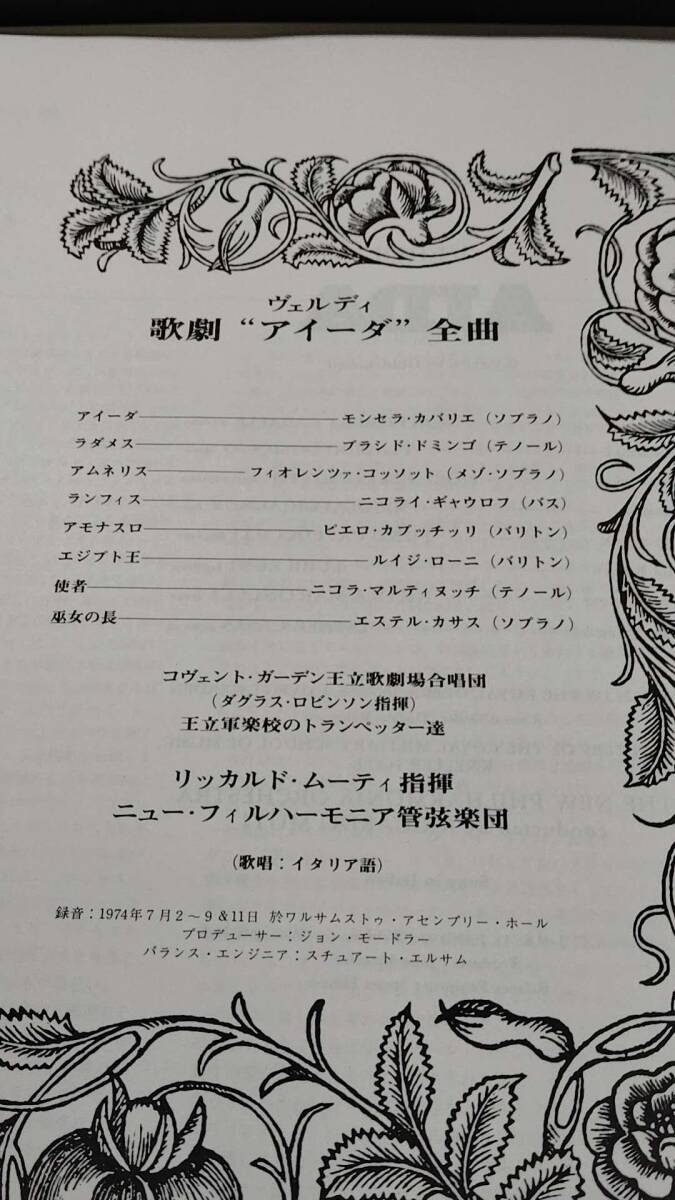 ヴェルディ
歌劇“アイーダ”全曲
アイーダ――モンセラ・カバリエ（ソプラノ）
ラダメス――プラシド・ドミンゴ（テノール）
アムネリス――フィオレンツァ・コッソット（メゾ・ソプラノ）
ランフィス――ニコライ・ギャウロフ（バス）
アモナスロ――ピエロ・カプッチッリ（バリトン）
エジプト王――ルイジ・ローニ（バリトン）
使者――ニコラ・マルティヌッチ（テノール）
巫女の長――エステル・カサス（ソプラノ）
コヴェント・ガーデン王立歌劇場合唱団
（ダグラス・ロビンソン指揮）
王立軍楽校のトランペッター達
リッカルド・ムーティ指揮
ニュー・フィルハーモニア管弦楽団
（歌唱：イタリア語）
録音：1974年7月2～9＆11日 於ワルサムストゥ・アセンブリー・ホール
プロデューサー：ジョン・モードラー
バランス・エンジニア：スチュアート・エルサム